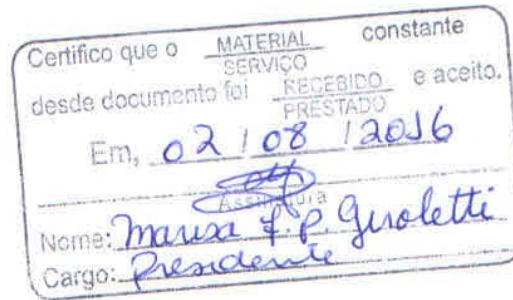 Certifico que o MATERIAL constante
SERVIÇO
desde documento foi RECEBIDO e aceito.
PRESTADO
Em, 02 / 08 / 2016
Assinatura
Nome: Marisa F. P. Giroletti
Cargo: Presidente